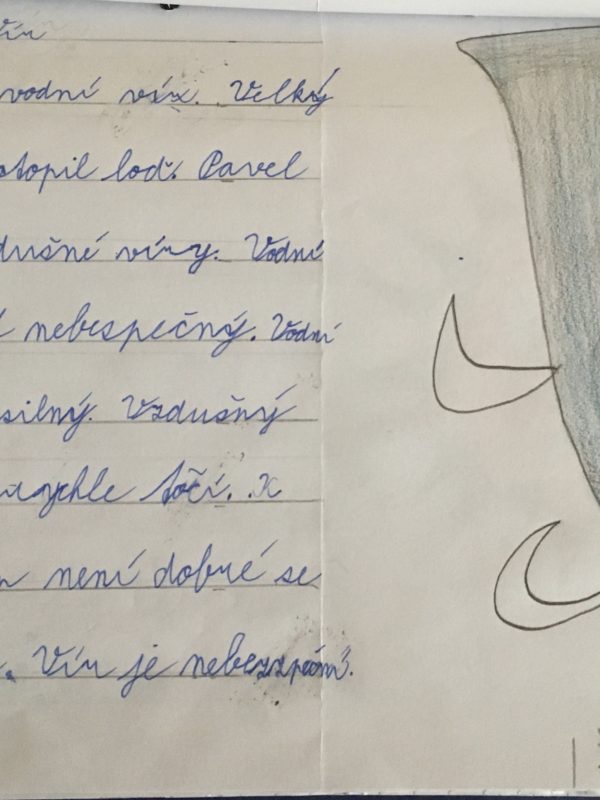 Vír
vodní vír. Velký
otopil loď. Pavel
dušné víry. Vodní
nebezpečný. Vodní
silný. Vzdušný
rychle točí. K
není dobré se
. Vír je nebezpečný.